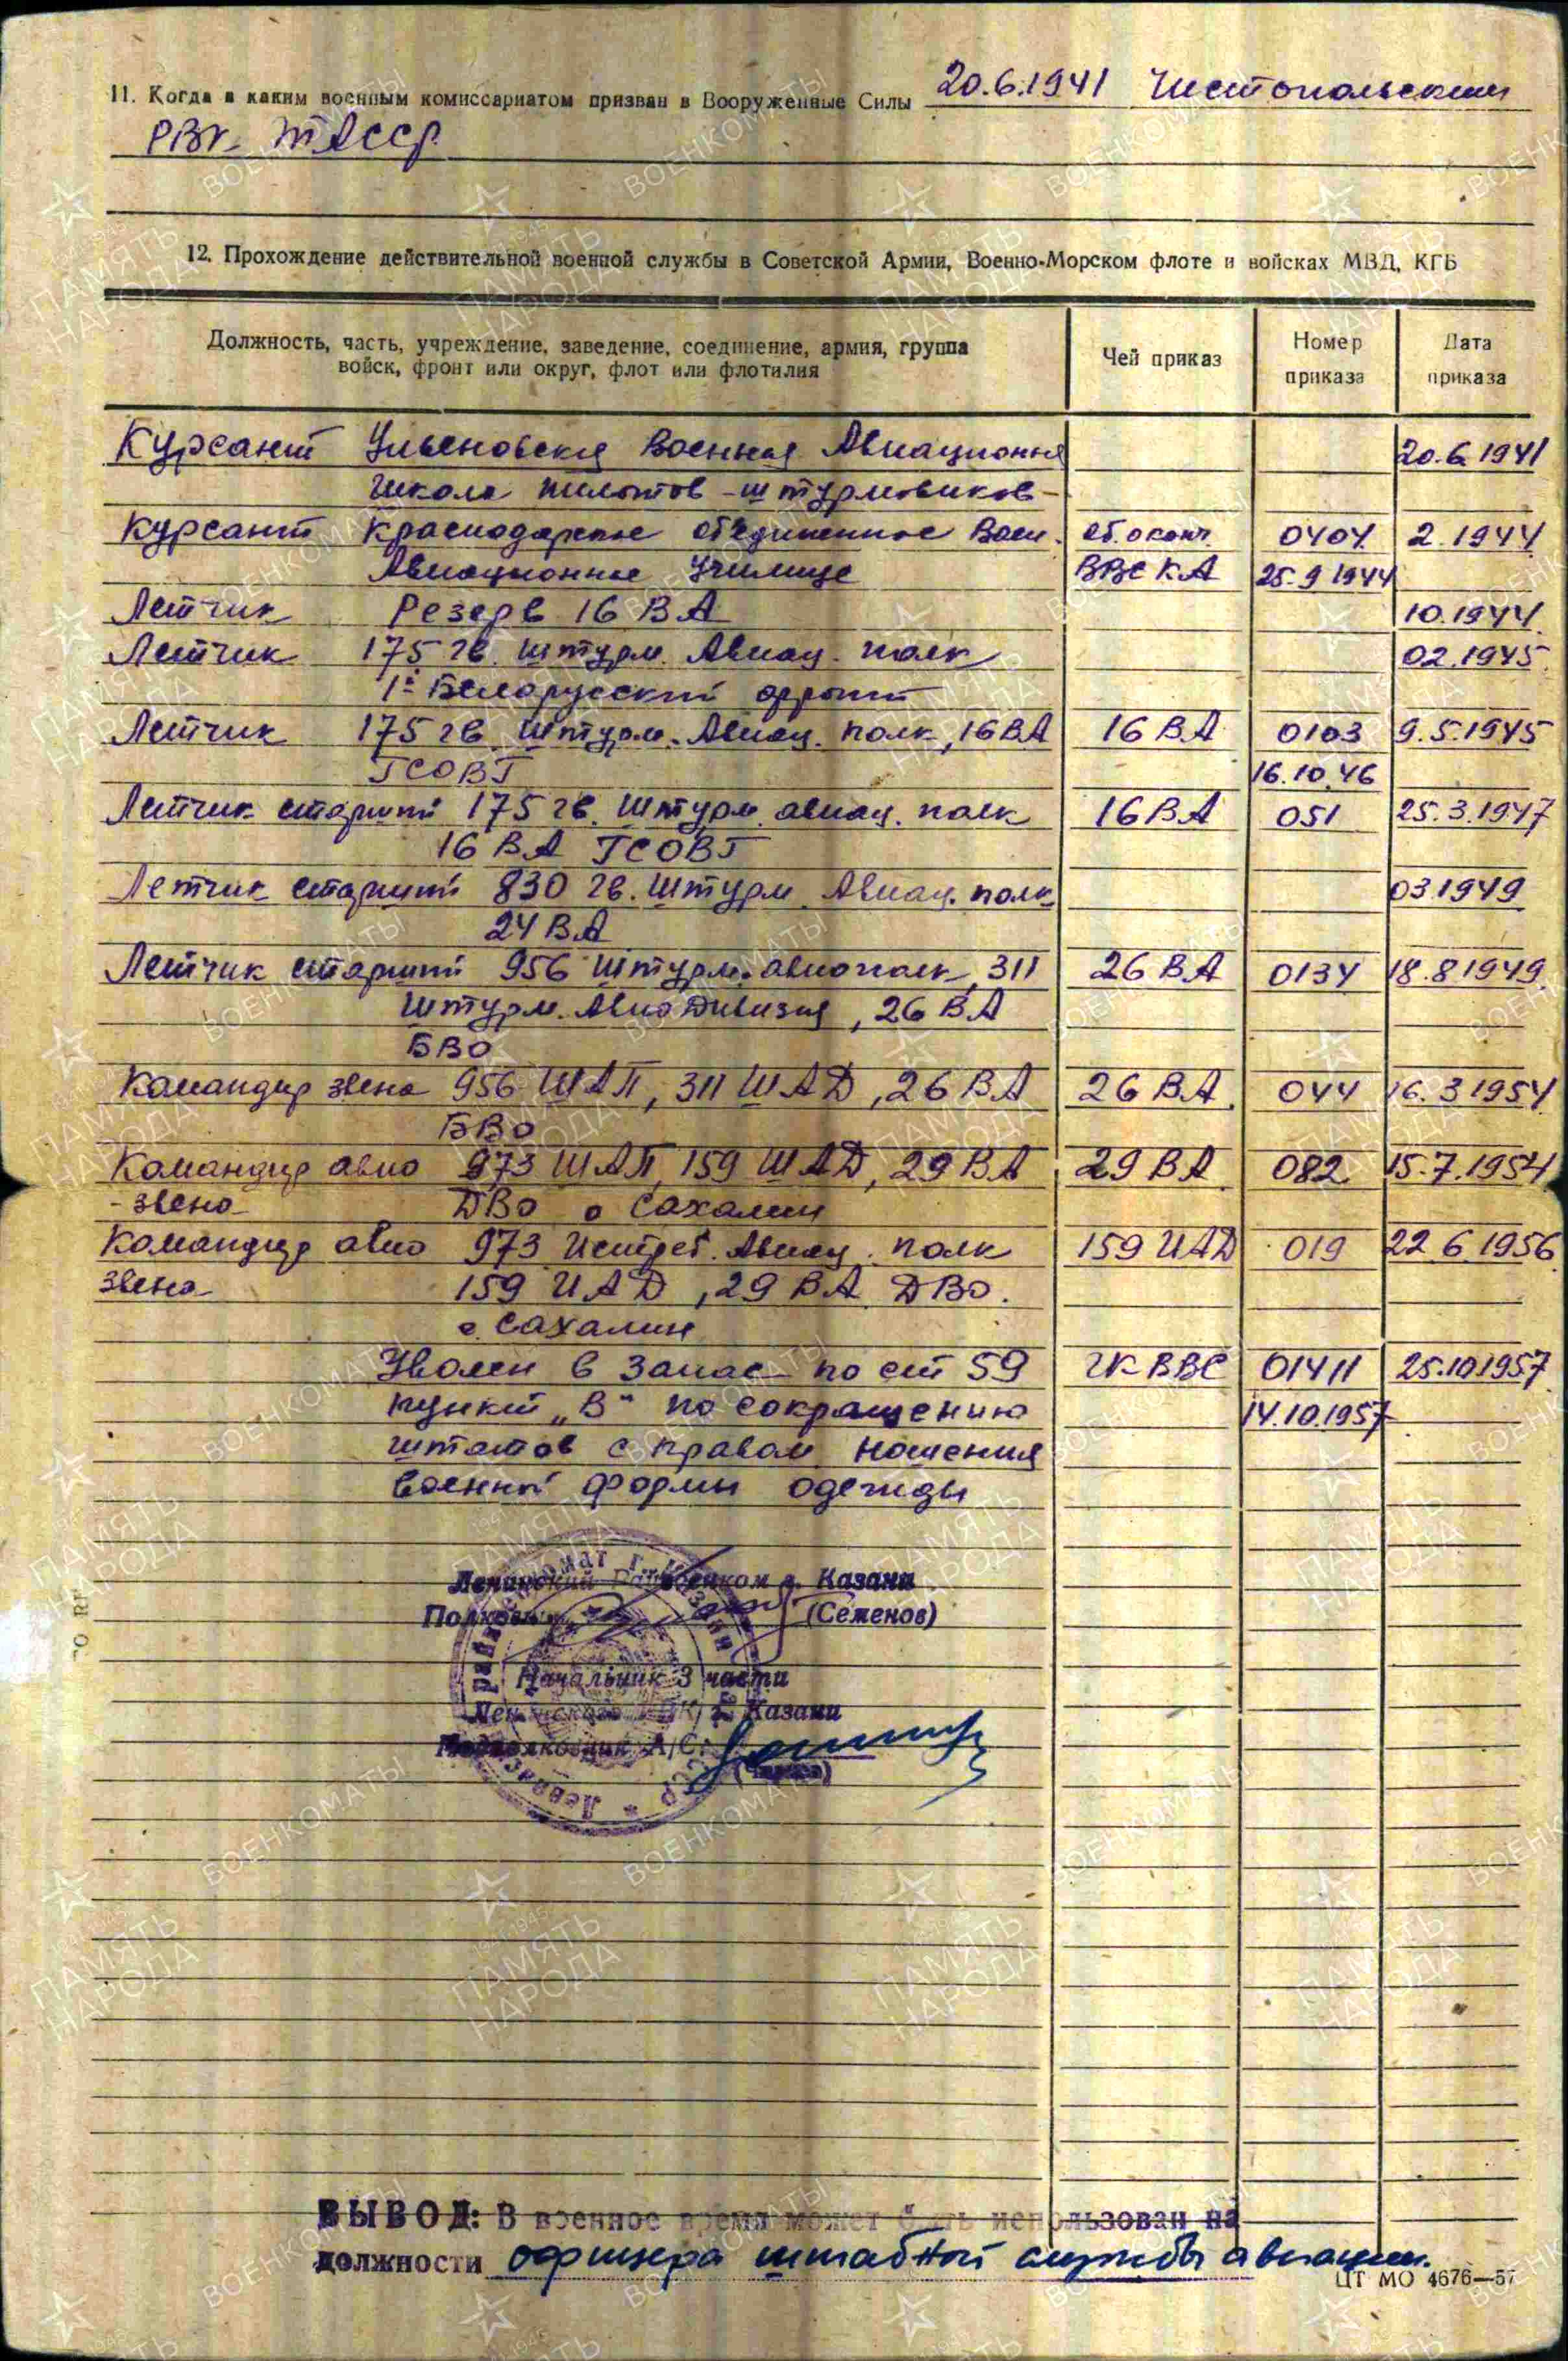 11. Когда и каким военным комиссариатом призван в Вооруженные Силы 20.6.1941 Чистопольским
РВК ТАССР
12. Прохождение действительной военной службы в Советской Армии, Военно-Морском флоте и войсках МВД, КГБ
Должность, часть, учреждение, заведение, соединение, армия, группа
войск, фронт или округ, флот или флотилия
Чей приказ
Номер
приказа
Дата
приказа
Курсант Ульяновская Военная Авиационная 20.6.1941
Школа пилотов-штурмовиков-
Курсант Краснодарское объединенное Воен. об. оконч. 0404 2.1944
Авиационное Училище ВВС КА 25.9.1944
Летчик Резерв 16 ВА 10.1944
Летчик 175 гв. Штурм. Авиац. полк 02.1945
1й Белорусский фронт
Летчик 175 гв. Штурм. Авиац. полк, 16 ВА 16 ВА 0103 9.5.1945
ГСОВГ 16.10.46
Летчик старший 175 гв. Штурм. авиац. полк 16 ВА 051 25.3.1947
16 ВА ГСОВГ
Летчик старший 830 гв. Штурм. Авиац. полк 03.1949
24 ВА
Летчик старший 956 штурм. авиополк, 311 26 ВА 0134 18.8.1949
штурм. Авиодивизия, 26 ВА
БВО
Командир звена 956 ШАП, 311 ШАД, 26 ВА 26 ВА. 044 16.3.1954
БВО
Командир авио 973 ШАП, 159 ШАД, 29 ВА 29 ВА. 082 15.7.1954
-звена ДВО о Сахалин
Командир авио 973 Истреб. Авиац. полк 159 ИАД 019 22.6.1956
звена 159 ИАД, 29 ВА ДВО.
о. Сахалин
Уволен в запас по ст 59 ГК ВВС 01411 25.10.1957
пункт „В" по сокращению 14.10.1957
штатов с правом ношения
военной формы одежды
Ленинский Райвоенком г. Казани
Полковник (Семенов)
Начальник 3 части
Ленинского РВК г. Казани
Подполковник А/С:
ВЫВОД: В военное время может быть использован на
должности офицера штабной службы авиации.
ЦТ МО 4676—57
ПАМЯТЬ НАРОДА
1941-1945
ВОЕНКОМАТЫ